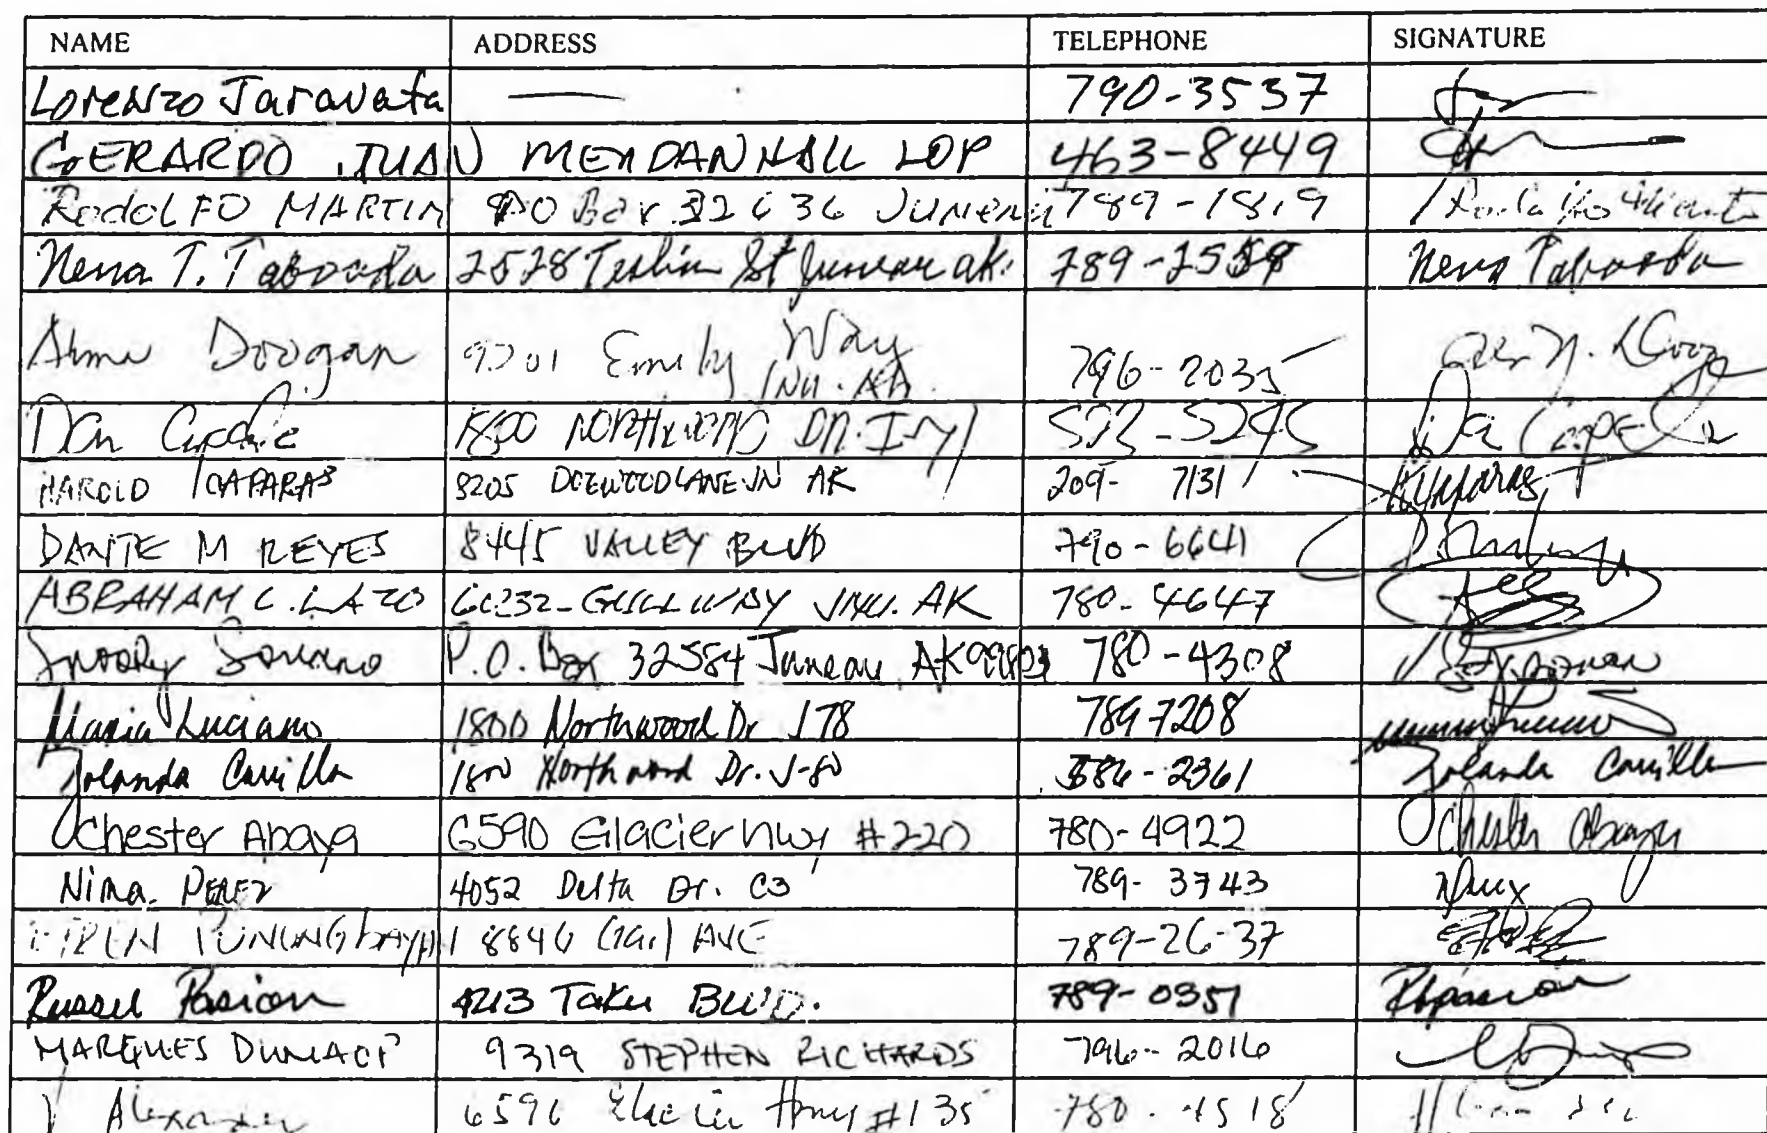 NAME ADDRESS TELEPHONE SIGNATURE
Lorenzo Jaravata — 790-3537
GERARDO JUAN MENDANHALL LOP 463-8449
RODOLFO MARTIN PO Box 32636 JUNEAU 789-1819 Rodolfo
Nena T. Taboada 2528 Teslin St Juneau ak. 789-2559 Nena Taboada
Alma Doogan 9201 Emily Way JNU. AK. 796-2035
Dan 1800 NORTHWOOD DR. 523-5245
HAROLD CAPARAS 3205 DOGWOOD LANE JN AK 209-7131
DANTE M REYES 8445 VALLEY BLVD 790-6641
ABRAHAM C. LAZO JNU. AK 780-4647
Snooky Soriano P.O. Box 32584 Juneau, AK 99803 780-4308
Maria Luciano 1800 Northwood Dr J78 789 7208
Yolanda Carrillo 1800 Northwood Dr. J-80 586-2361 Yolanda Carrillo
Chester Abaya 6590 Glacier hwy #220 780-4922 Chester Abaya
Nima. PEREZ 4052 Delta Dr. C3 789-3743
PUNUNGBAYAN 8846 Gail AVE 789-26-37
Russel Pasion 4213 Taku BLVD. 789-0351 Rbpasion
MARQUES DUMAOP 9319 STEPHEN RICHARDS 796-2016
Alexander 6590 #135 780-4518